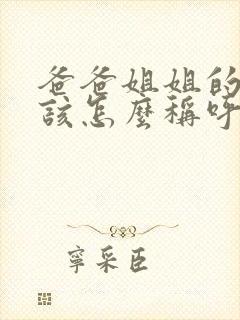 爸爸姐姐的
該怎麼稱呼
寧采臣